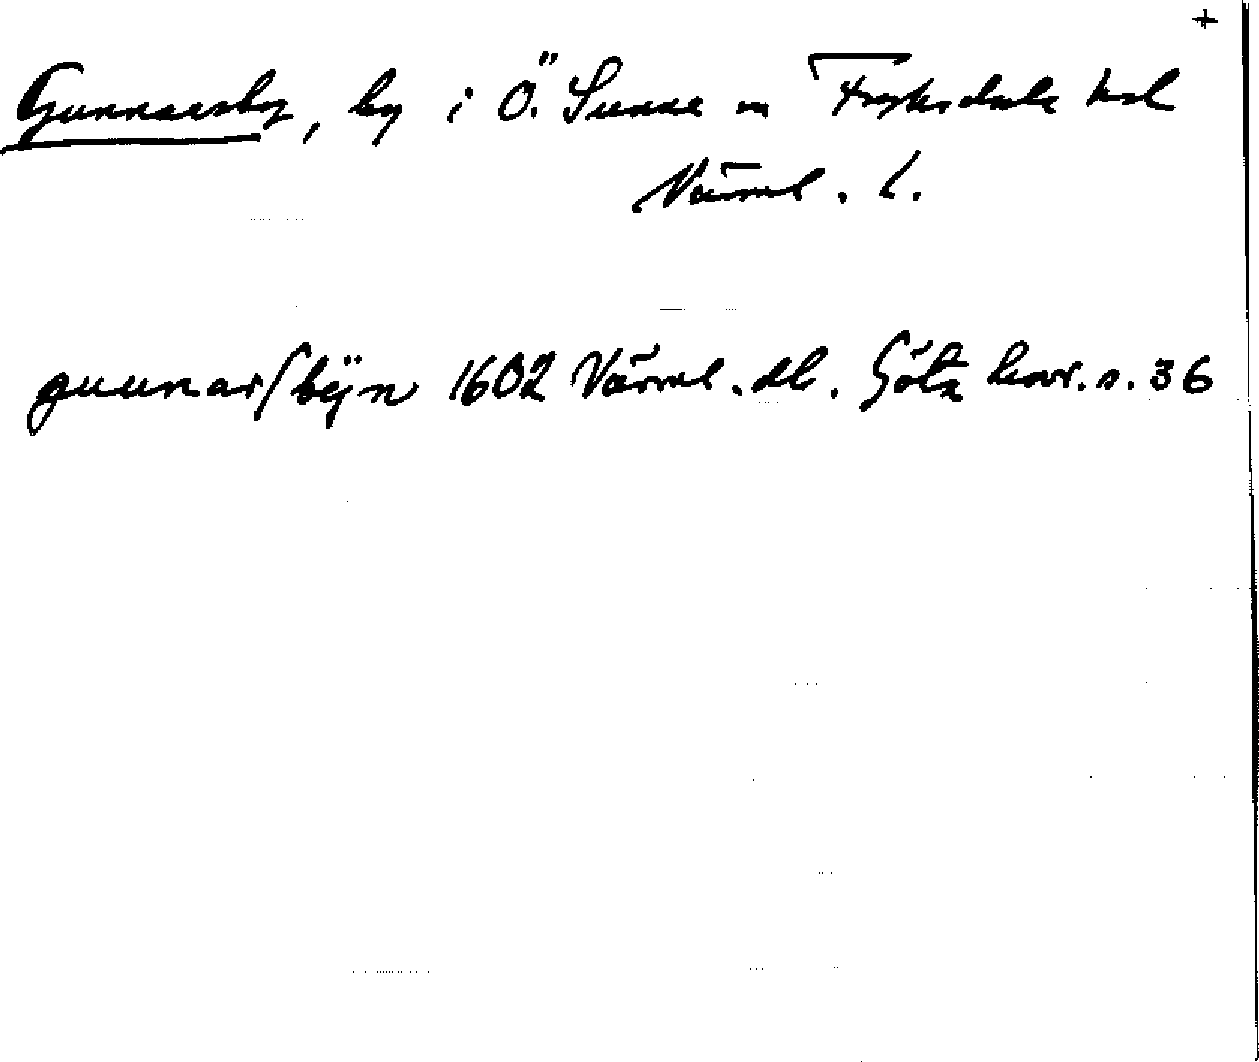 +
Gunnarsby, by i Ö. Sunne sn Fryksdals hd
Värml. l.
gunnarſbÿn 1602 Värml. db. Göta hovr. s. 36